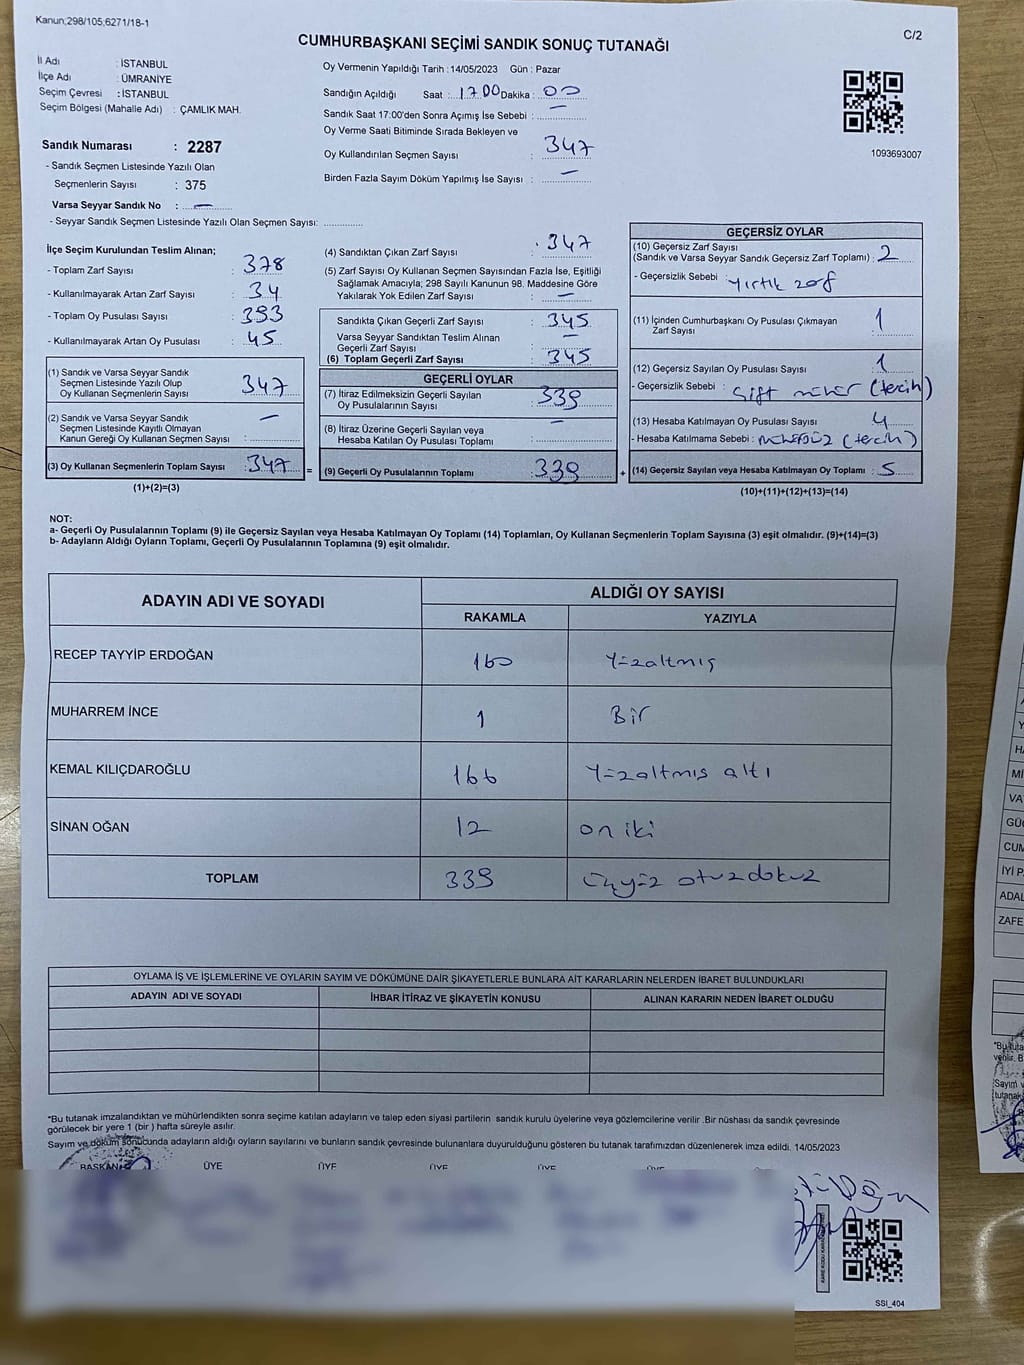 Kanun;298/105;6271/18-1
C/2
CUMHURBAŞKANI SEÇİMİ SANDIK SONUÇ TUTANAĞI
İl Adı : İSTANBUL
İlçe Adı : ÜMRANİYE
Seçim Çevresi : İSTANBUL
Seçim Bölgesi (Mahalle Adı) : ÇAMLIK MAH.
Sandık Numarası : 2287
- Sandık Seçmen Listesinde Yazılı Olan
Seçmenlerin Sayısı : 375
Varsa Seyyar Sandık No : —
- Seyyar Sandık Seçmen Listesinde Yazılı Olan Seçmen Sayısı: ..............
Oy Vermenin Yapıldığı Tarih : 14/05/2023 Gün : Pazar
Sandığın Açıldığı Saat : 17.00 Dakika : 00
Sandık Saat 17:00'den Sonra Açımış İse Sebebi : —
Oy Verme Saati Bitiminde Sırada Bekleyen ve
Oy Kullandırılan Seçmen Sayısı : 347
Birden Fazla Sayım Döküm Yapılmış İse Sayısı : —
1093693007
İlçe Seçim Kurulundan Teslim Alınan;
- Toplam Zarf Sayısı : 378
- Kullanılmayarak Artan Zarf Sayısı : 34
- Toplam Oy Pusulası Sayısı : 393
- Kullanılmayarak Artan Oy Pusulası : 45
(1) Sandık ve Varsa Seyyar Sandık
Seçmen Listesinde Yazılı Olup
Oy Kullanan Seçmenlerin Sayısı : 347
(2) Sandık ve Varsa Seyyar Sandık
Seçmen Listesinde Kayıtlı Olmayan
Kanun Gereği Oy Kullanan Seçmen Sayısı : —
(3) Oy Kullanan Seçmenlerin Toplam Sayısı : 347 =
(1)+(2)=(3)
(4) Sandıktan Çıkan Zarf Sayısı : 347
(5) Zarf Sayısı Oy Kullanan Seçmen Sayısından Fazla İse, Eşitliği
Sağlamak Amacıyla; 298 Sayılı Kanunun 98. Maddesine Göre
Yakılarak Yok Edilen Zarf Sayısı : —
Sandıkta Çıkan Geçerli Zarf Sayısı : 345
Varsa Seyyar Sandıktan Teslim Alınan
Geçerli Zarf Sayısı : —
(6) Toplam Geçerli Zarf Sayısı : 345
GEÇERLİ OYLAR
(7) İtiraz Edilmeksizin Geçerli Sayılan
Oy Pusulalarının Sayısı : 339
(8) İtiraz Üzerine Geçerli Sayılan veya
Hesaba Katılan Oy Pusulası Toplamı : —
(9) Geçerli Oy Pusulalarının Toplamı : 339 +
GEÇERSİZ OYLAR
(10) Geçersiz Zarf Sayısı
(Sandık ve Varsa Seyyar Sandık Geçersiz Zarf Toplamı) : 2
- Geçersizlik Sebebi : Yırtık zarf
(11) İçinden Cumhurbaşkanı Oy Pusulası Çıkmayan
Zarf Sayısı : 1
(12) Geçersiz Sayılan Oy Pusulası Sayısı : 1
- Geçersizlik Sebebi : Çift mühür (tercih)
(13) Hesaba Katılmayan Oy Pusulası Sayısı : 4
- Hesaba Katılmama Sebebi : mühürsüz (tercih)
(14) Geçersiz Sayılan veya Hesaba Katılmayan Oy Toplamı : 5
(10)+(11)+(12)+(13)=(14)
NOT:
a- Geçerli Oy Pusulalarının Toplamı (9) ile Geçersiz Sayılan veya Hesaba Katılmayan Oy Toplamı (14) Toplamları, Oy Kullanan Seçmenlerin Toplam Sayısına (3) eşit olmalıdır. (9)+(14)=(3)
b- Adayların Aldığı Oyların Toplamı, Geçerli Oy Pusulalarının Toplamına (9) eşit olmalıdır.
ADAYIN ADI VE SOYADI
ALDIĞI OY SAYISI
RAKAMLA YAZIYLA
RECEP TAYYİP ERDOĞAN 160 Yüzaltmış
MUHARREM İNCE 1 Bir
KEMAL KILIÇDAROĞLU 166 Yüzaltmış altı
SİNAN OĞAN 12 on iki
TOPLAM 339 üçyüz otuzdokuz
OYLAMA İŞ VE İŞLEMLERİNE VE OYLARIN SAYIM VE DÖKÜMÜNE DAİR ŞİKAYETLERLE BUNLARA AİT KARARLARIN NELERDEN İBARET BULUNDUKLARI
ADAYIN ADI VE SOYADI İHBAR İTİRAZ VE ŞİKAYETİN KONUSU ALINAN KARARIN NEDEN İBARET OLDUĞU
*Bu tutanak imzalandıktan ve mühürlendikten sonra seçime katılan adayların ve talep eden siyasi partilerin sandık kurulu üyelerine veya gözlemcilerine verilir .Bir nüshası da sandık çevresinde
görülecek bir yere 1 (bir ) hafta süreyle asılır.
Sayım ve döküm sonucunda adayların aldığı oyların sayılarını ve bunların sandık çevresinde bulunanlara duyurulduğunu gösteren bu tutanak tarafımızdan düzenlenerek imza edildi. 14/05/2023
BAŞKAN ÜYE ÜYE ÜYE ÜYE ÜYE
SSI_404